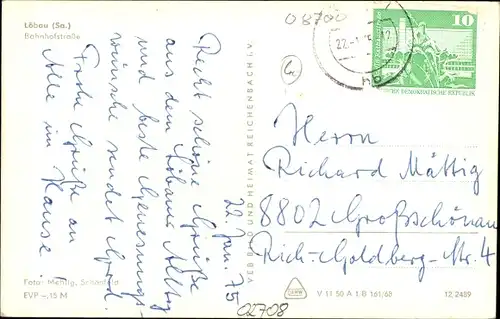 Löbau (Sa.)
Bahnhofstraße
08700
22. Jan. 75
Recht schöne Grüße
aus dem Löbauer Alltag
und beste Genesungs-
wünsche sendet Gerd.
Frohe Grüße an
Alle im
Hause!
Foto: Mehlig, Schönfeld
EVP –,15 M
VEB BILD UND HEIMAT REICHENBACH I.V.
10
DEUTSCHE DEMOKRATISCHE REPUBLIK
Herrn
Richard Mättig
8802 Großschönau
Rich.-Goldberg-Str. 4
V 11 50 A 1/B 161/68
12 2489
02708